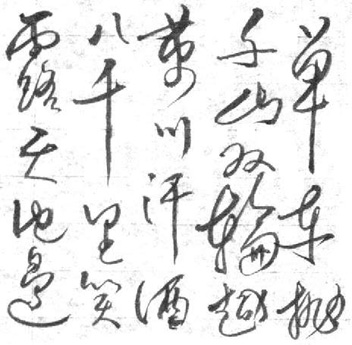 单车挑
千山双輪越
萬川汗洒
八千里笑
露天地邊